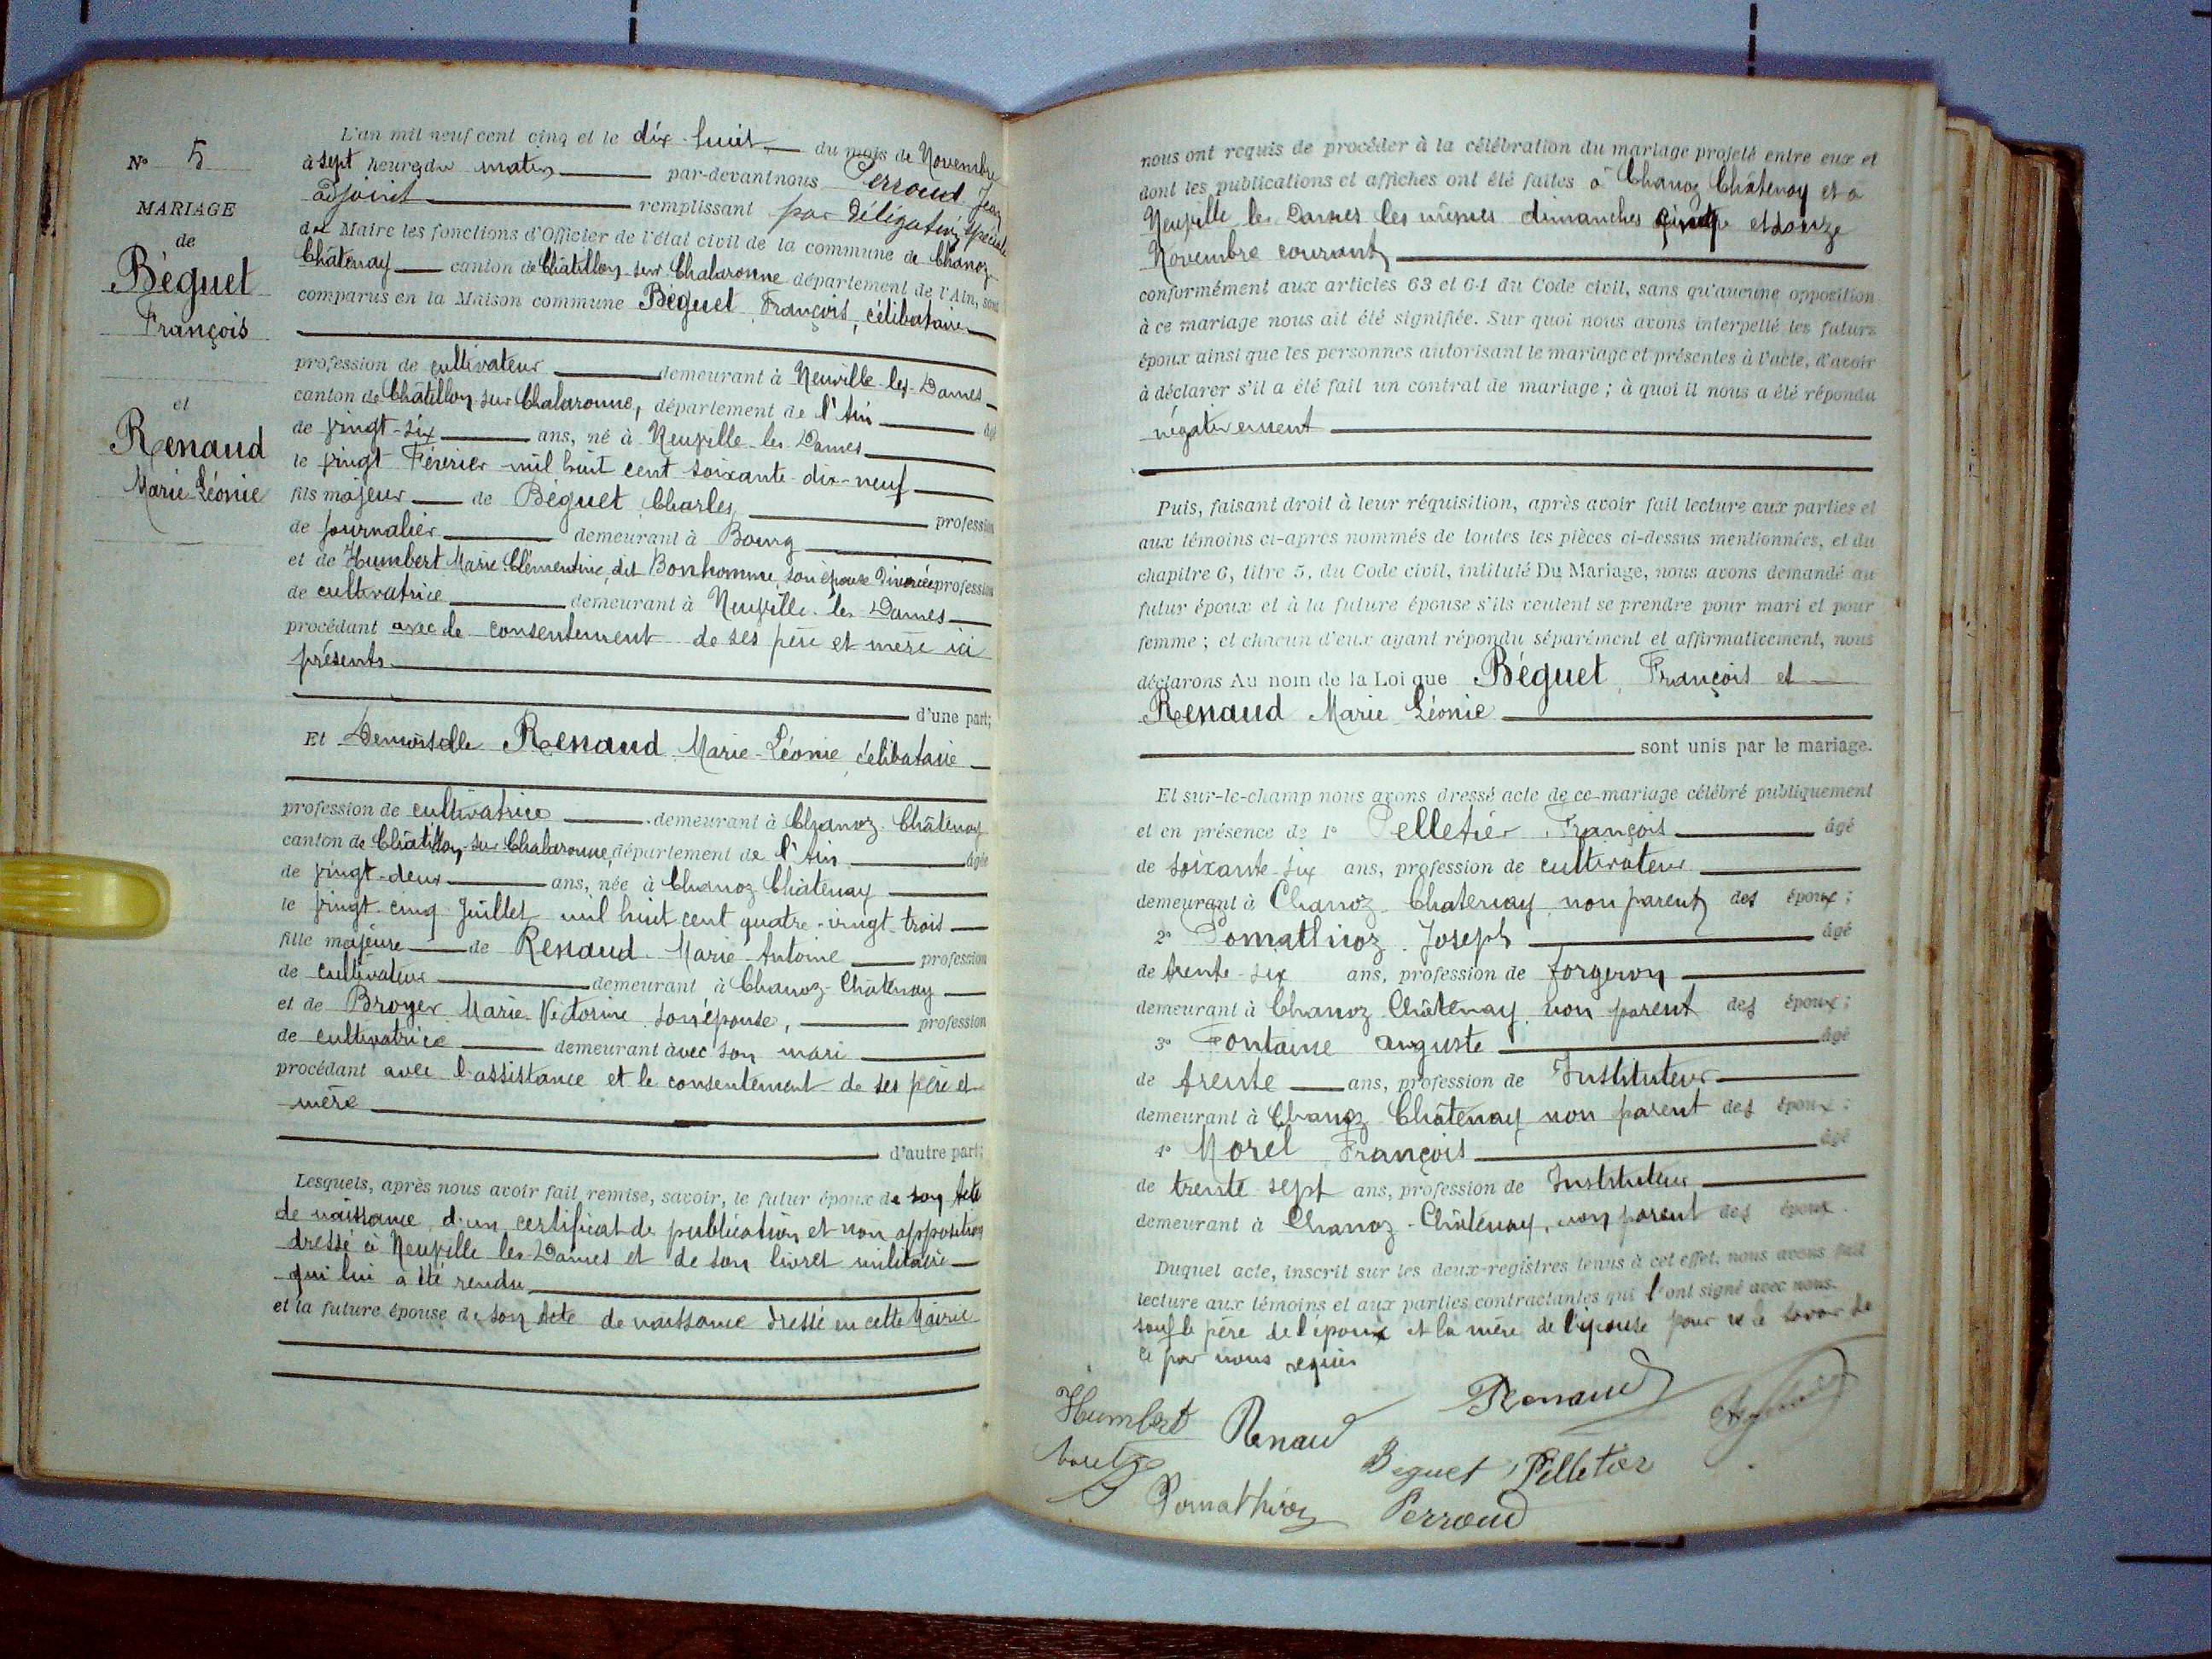 N° 5
MARIAGE
de
Béguet
François
et
Renaud
Marie-Léonie
L'an mil neuf cent cinq et le dix-huit du mois de Novembre
à sept heures du matin par-devant nous Perroud Jean
adjoint remplissant par délégation spéciale
de Maire les fonctions d'Officier de l'état civil de la commune de Chanoz-
Châtenay canton de Châtillon-sur-Chalaronne département de l'Ain, sont
comparus en la Maison commune Béguet François, célibataire
profession de cultivateur demeurant à Neuville-les-Dames
canton de Châtillon-sur-Chalaronne, département de l'Ain âgé
de vingt-six ans, né à Neuville-les-Dames
le vingt Février mil huit cent soixante-dix-neuf
fils majeur de Béguet Charles, profession
de journalier demeurant à Bourg
et de Humbert Marie Clémentine, dit Bonhomme, son épouse divorcée profession
de cultivatrice demeurant à Neuville-les-Dames
procédant avec le consentement de ses père et mère ici
présents
d'une part;
Et Demoiselle Renaud Marie-Léonie, célibataire
profession de cultivatrice demeurant à Chanoz-Châtenay
canton de Châtillon-sur-Chalaronne, département de l'Ain âgée
de vingt-deux ans, née à Chanoz-Châtenay
le vingt-cinq Juillet mil huit cent quatre-vingt-trois
fille majeure de Renaud Marie-Antoine profession
de cultivateur demeurant à Chanoz-Châtenay
et de Broyer Marie-Victorine son épouse, profession
de cultivatrice demeurant avec son mari
procédant avec l'assistance et le consentement de ses père et
mère
d'autre part;
Lesquels, après nous avoir fait remise, savoir, le futur époux de son Acte
de naissance, d'un certificat de publication et non opposition
dressé à Neuville les-Dames et de son livret militaire
qui lui a été rendu
et la future épouse de son Acte de naissance dressé en cette Mairie
nous ont requis de procéder à la célébration du mariage projeté entre eux et
dont les publications et affiches ont été faites à Chanoz Châtenay et à
Neuville les Dames les mêmes dimanches cinq et douze
Novembre courant
conformément aux articles 63 et 64 du Code civil, sans qu'aucune opposition
à ce mariage nous ait été signifiée. Sur quoi nous avons interpellé les futurs
époux ainsi que les personnes autorisant le mariage et présentes à l'acte, d'avoir
à déclarer s'il a été fait un contrat de mariage ; à quoi il nous a été répondu
négativement
Puis, faisant droit à leur réquisition, après avoir fait lecture aux parties et
aux témoins ci-après nommés de toutes les pièces ci-dessus mentionnées, et du
chapitre 6, titre 5, du Code civil, intitulé Du Mariage, nous avons demandé au
futur époux et à la future épouse s'ils veulent se prendre pour mari et pour
femme ; et chacun d'eux ayant répondu séparément et affirmativement, nous
déclarons Au nom de la Loi que Béguet François et
Renaud Marie Léonie
sont unis par le mariage.
Et sur-le-champ nous avons dressé acte de ce mariage célébré publiquement
et en présence de 1° Pelletier François âgé
de soixante-six ans, profession de cultivateur
demeurant à Chanoz-Chatenay, non parent des époux ;
2° Pomathioz Joseph âgé
de trente-six ans, profession de forgeron
demeurant à Chanoz-Châtenay, non parent des époux ;
3° Fontaine Auguste âgé
de trente ans, profession de Instituteur
demeurant à Chanoz-Châtenay non parent des époux ;
4° Morel François âgé
de trente sept ans, profession de Instituteur
demeurant à Chanoz-Châtenay, non parent des époux.
Duquel acte, inscrit sur les deux registres tenus à cet effet, nous avons fait
lecture aux témoins et aux parties contractantes qui l'ont signé avec nous
sauf le père de l'époux et la mère de l'épouse pour ne le savoir de
ce par nous requis
Humbert Renaud Renaud
Morel Beguet Pelletier
Pomathioz Perroud